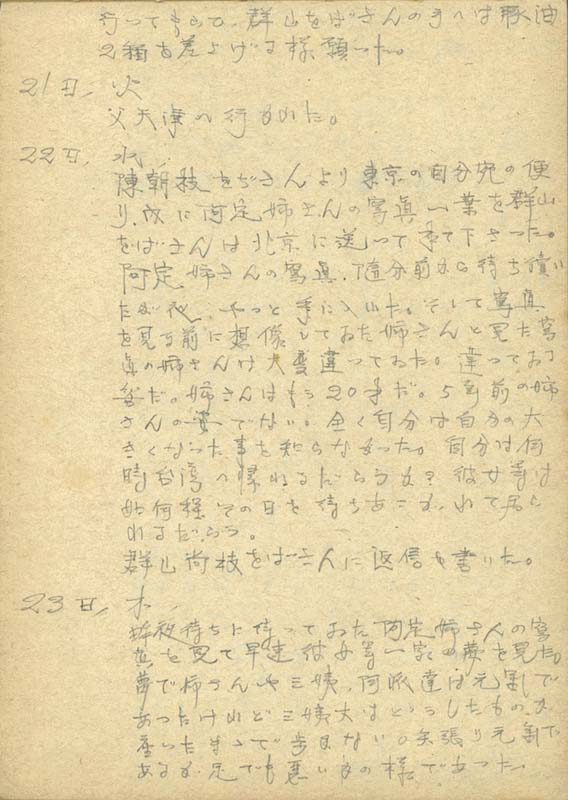 行ってもらて、群山をばさんの手へは豚油
2種を差上げる様願った。
21日、火
父天津へ行かれた。
22日、水、
陳朝枝をぢさんより東京の自分宛の便
り、故に阿定姉さんの写真一葉を群山
をばさんは北京に送って来て下さった。
阿定姉さんの写真、随分前から待ち憤い
たが、やっと手に入いた。そして写真
を見る前に想像しておた姉さんと見た写
真の姉さんは大変違っておた。違っておる
筈だ。姉さんはもう20才だ。5年前の姉
さんの姿でない。全く自分は自分の大
きくなった事を知らなかった。自分は何
時台湾へ帰れるだらうか?彼女等は
如何程その日を待ちあこがれて居ら
れるだらう。
群山尚枝をばさんに返信を書いた。
23日、木、
昨夜待ちに待っておた阿定姉さんの写
真を見て早速彼女等一家の夢を見た。
夢で姉さんや三姨、阿派達は元気で
あったけれど三姨丈はどうしたものか
座ったまゝで歩まない。矢張り元気で
あるが足でも悪いかの様であった。